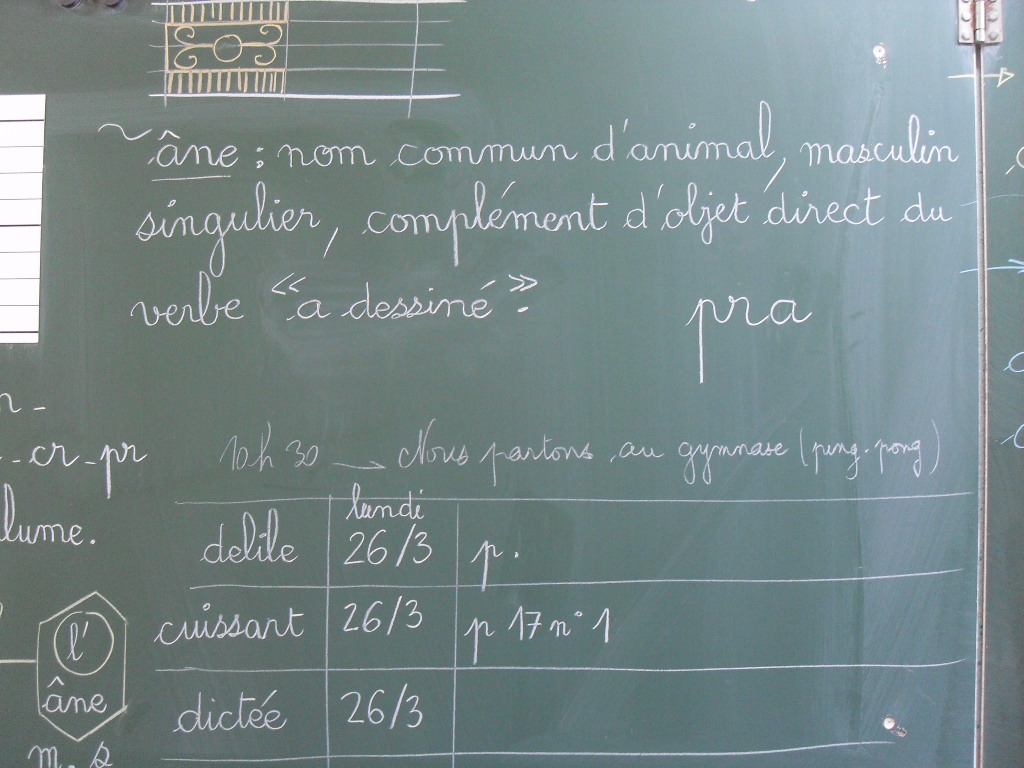 ~ âne : nom commun d'animal, masculin
singulier, complément d'objet direct du
verbe « a dessiné ».
pra
- cr - pr
lume.
l'
âne
m. s
10h 30 → Nous partons au gymnase (ping-pong)
lundi
delile 26/3 p.
cuissart 26/3 p 17 n° 1
dictée 26/3